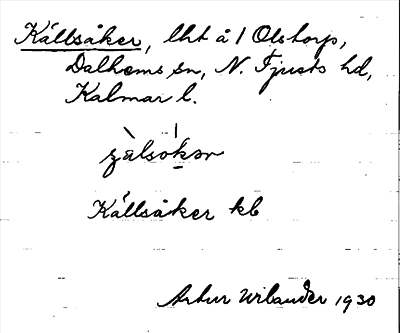 Källsåker, lht å 1 Olstorp,
Dalhems sn, N. Tjusts hd,
Kalmar l.
Källsåker kb
Artur Wilander 1930